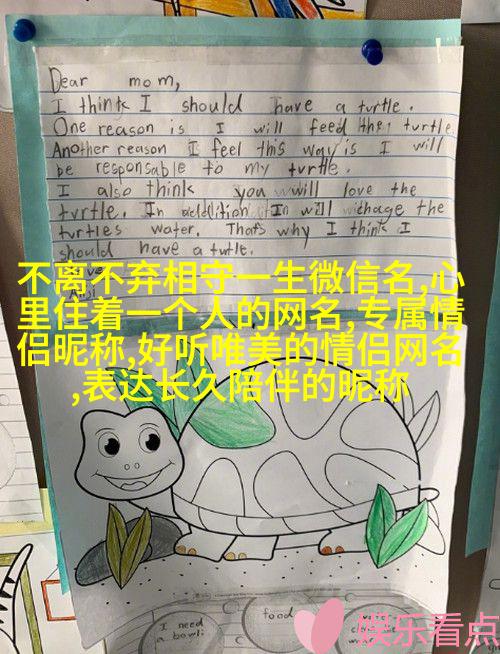 Dear mom,
I think I should have a turtle.
One reason is I will feed the turtle.
Another reason I feel this way is I will
be responsable to my turtle.
I also think you will love the
turtle. In addition I will chage the
turtles water. That's why I think I
should have a turtle.
不离不弃相守一生微信名,心
里住着一个人的网名,专属情
侣昵称,好听唯美的情侣网名
,表达长久陪伴的昵称
I need
a bowl:
food
娱乐看点